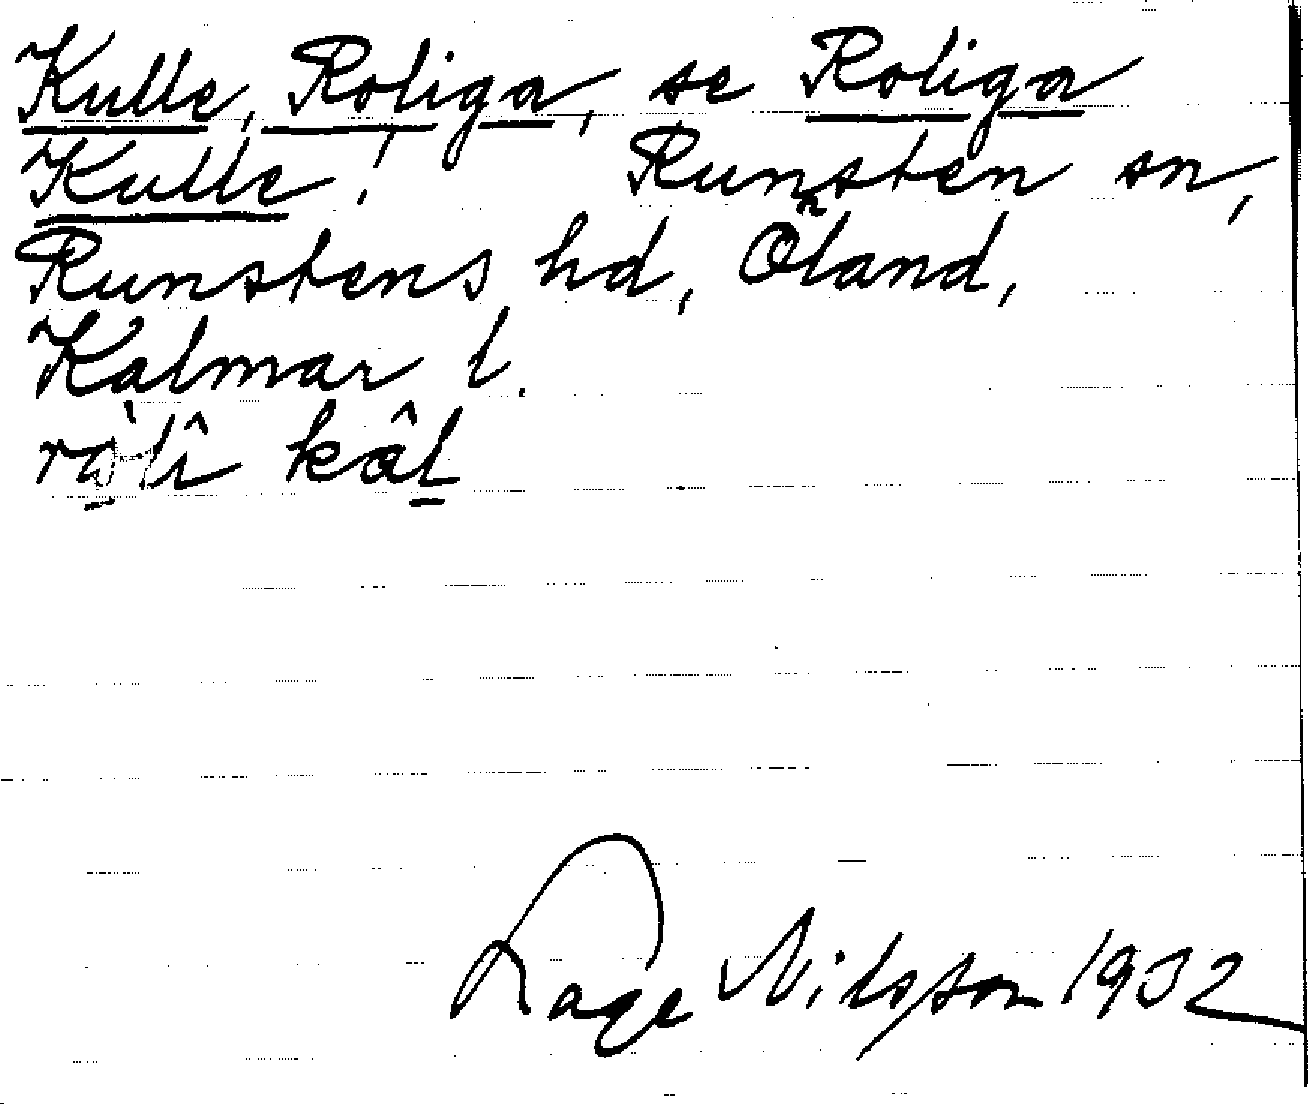 Kulle, Roliga, se Roliga
Kulle! Runsten sn,
Runstens hd, Öland,
Kalmar l.
kâl
Nilsson 1932